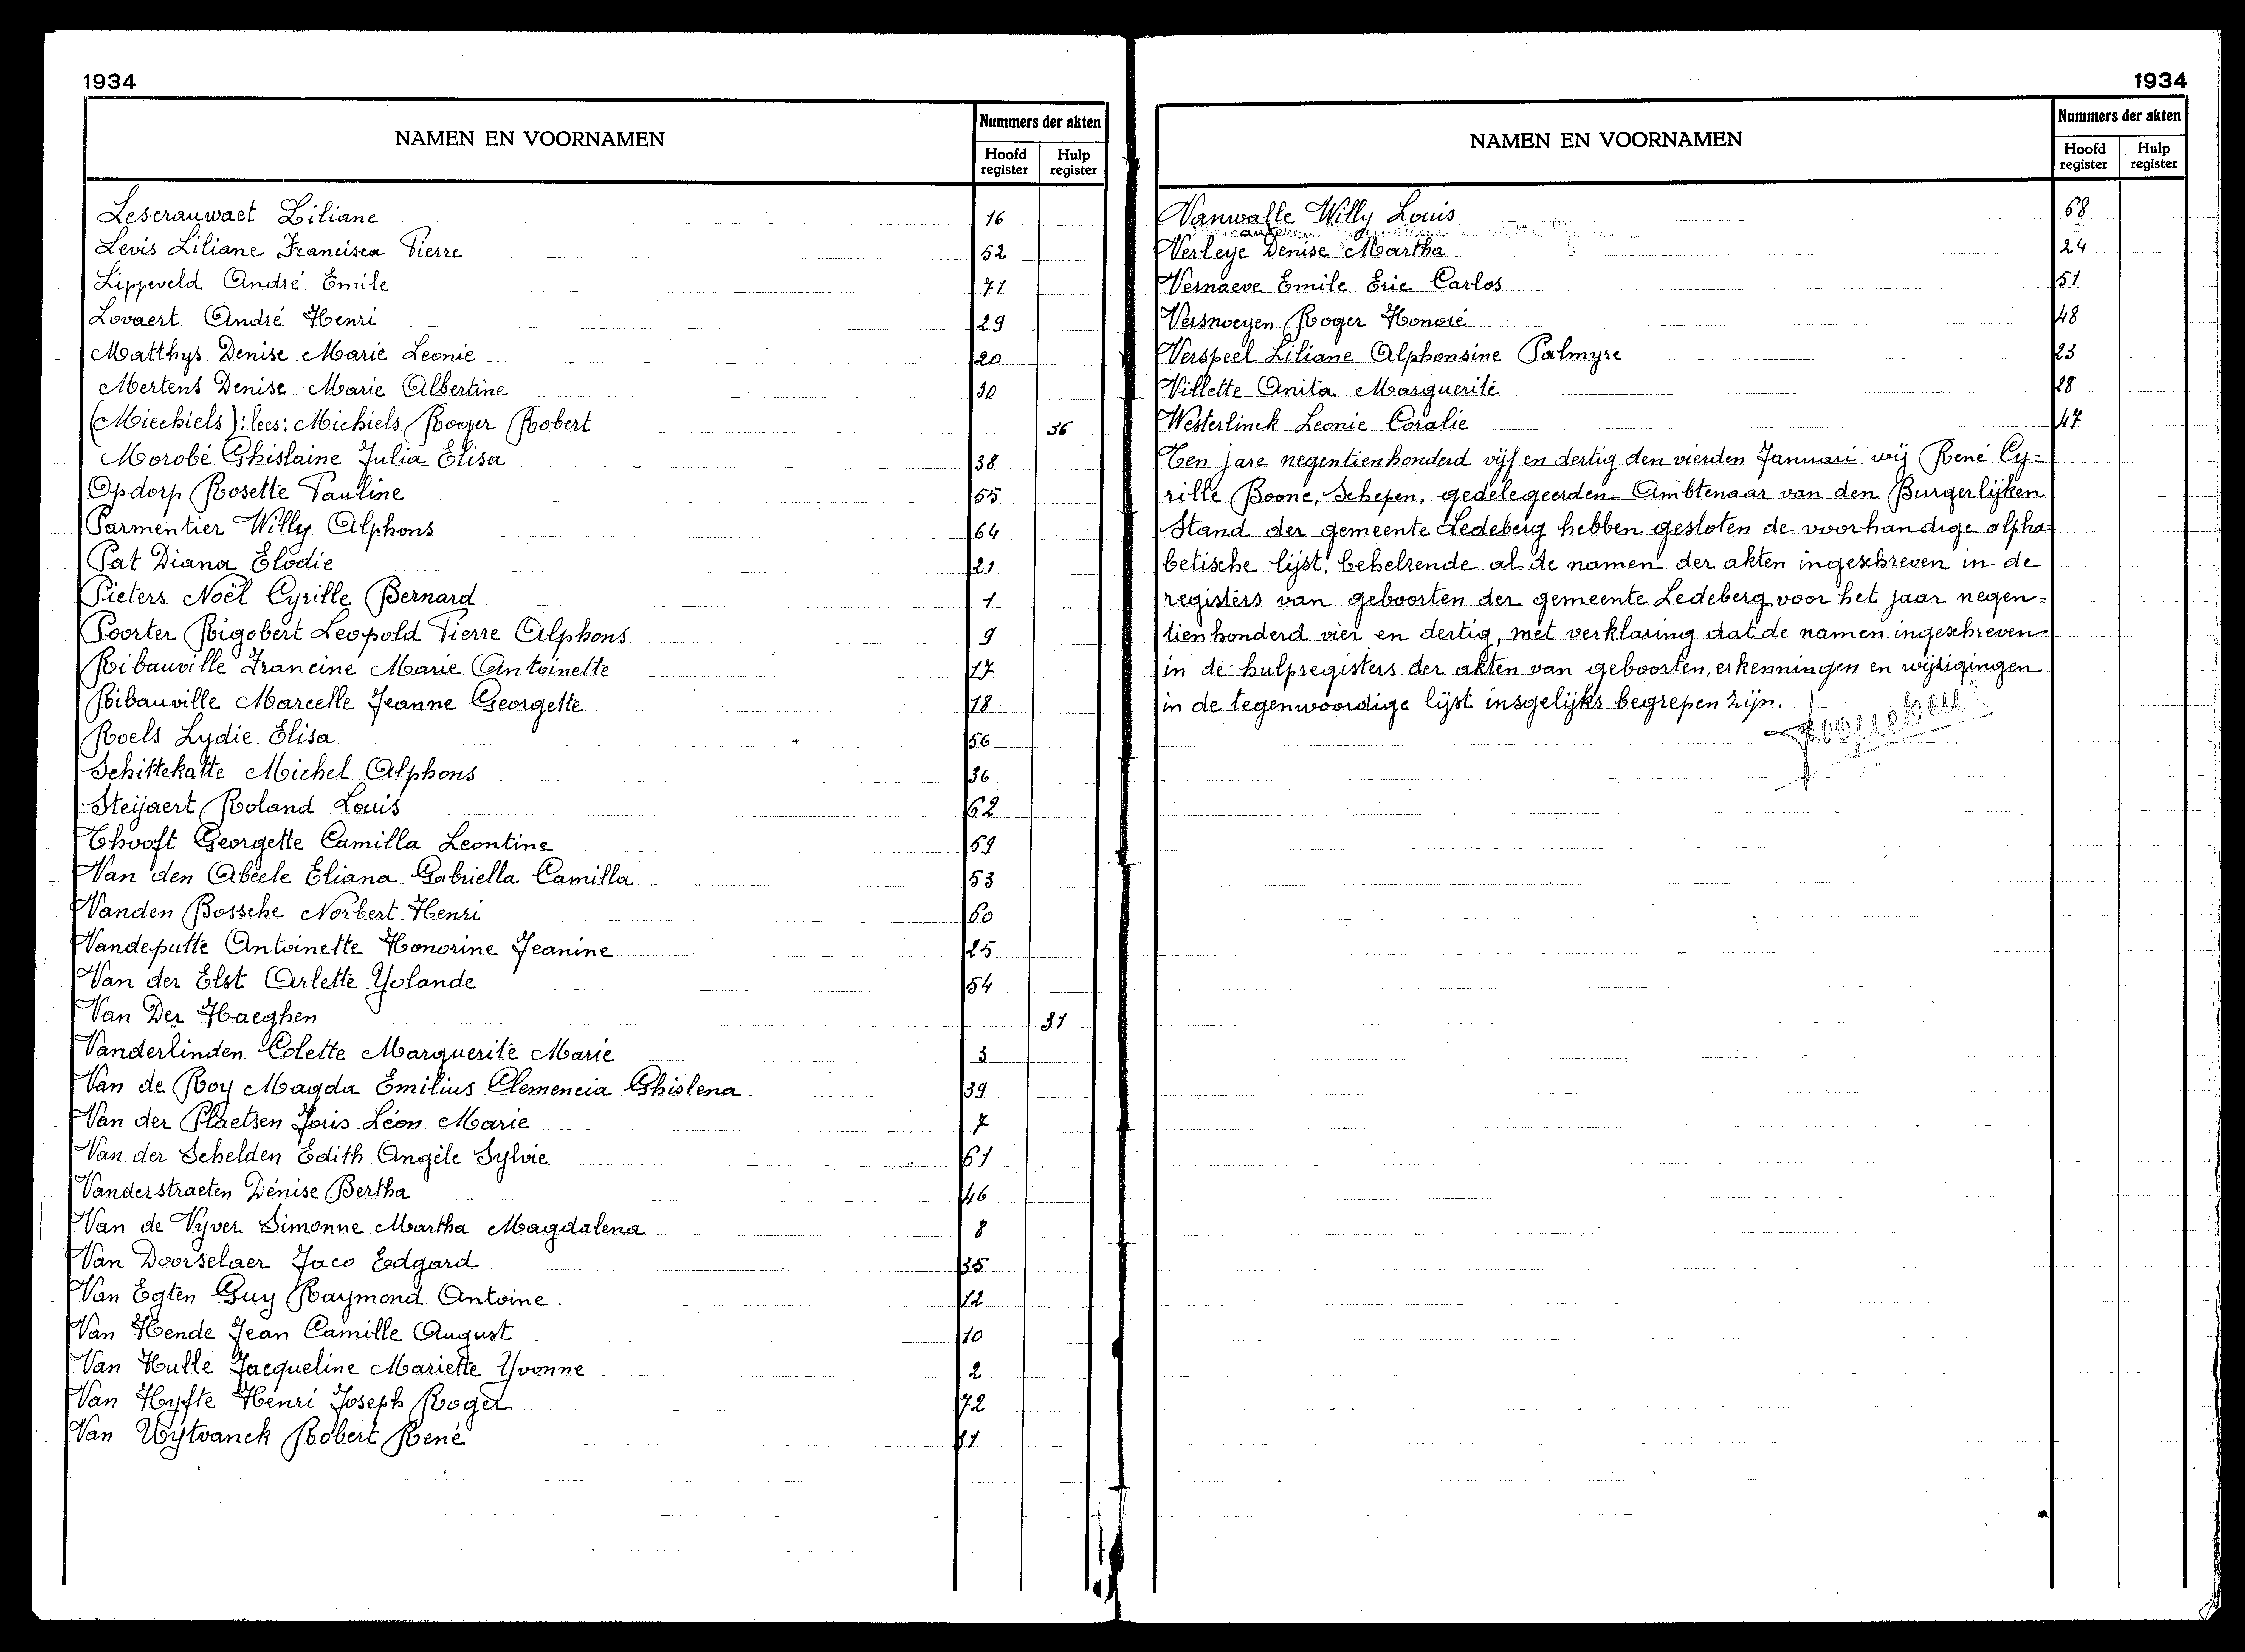 1934
NAMEN EN VOORNAMEN
Nummers der akten
Hoofd register
Hulp register
Leserauwaet Liliane 16
Levis Liliane Francisca Pierre 52
Lippeveld André Emile 71
Lovaert André Henri 29
Matthys Denise Marie Leonie 20
Mertens Denise Marie Albertine 30
(Miechiels): lees: Michiels Roger Robert 36
Morobé Ghislaine Julia Elisa 38
Opdorp Rosette Pauline 55
Parmentier Willy Alphons 64
Pat Diana Elodie 21
Pieters Noël Cyrille Bernard 1
Poorter Rigobert Leopold Pierre Alphons 9
Ribauville Francine Marie Antoinette 17
Ribauville Marcelle Jeanne Georgette 18
Roels Lydie Elisa 56
Schittekatte Michel Alphons 36
Steijaert Roland Louis 62
Thooft Georgette Camilla Leontine 69
Van den Abeele Eliana Gabriella Camilla 53
Vanden Bossche Norbert Henri 60
Vandeputte Antoinette Honorine Jeanine 25
Van der Elst Arlette Yolande 54
Van Der Haeghen 31
Vanderlinden Colette Marguerite Marie 3
Van de Roy Magda Emilius Clemencia Ghislena 39
Van der Plaetsen Joris Léon Marie 7
Van der Schelden Edith Angèle Sylvie 61
Vanderstraeten Dénise Bertha 46
Van de Vyver Simonne Martha Magdalena 8
Van Doorselaer Jaco Edgard 35
Van Egten Guy Raymond Antoine 12
Van Hende Jean Camille August 10
Van Hulle Jacqueline Mariette Yvonne 2
Van Hyfte Henri Joseph Roger 72
Van Uytvanck Robert René
1934
NAMEN EN VOORNAMEN
Nummers der akten
Hoofd register
Hulp register
Vanwalle Willy Louis 68
Verleye Denise Martha 24
Vernaeve Emile Eric Carlos 51
Versweyen Roger Honoré 48
Verspeel Liliane Alphonsine Palmyre 23
Villette Anita Marguerite 28
Westerlinck Leonie Coralie 47
Ten jare negentienhonderd vijf en dertig den vierden Januari wij René Cy=
rille Boone, Schepen, gedelegeerden Ambtenaar van den Burgerlijken
Stand der gemeente Ledeberg hebben gesloten de voorhandige alpha=
betische lijst, behelzende al de namen der akten ingeschreven in de
registers van geboorten der gemeente Ledeberg voor het jaar negen=
tien honderd vier en dertig, met verklaring dat de namen ingeschreven
in de hulpregisters der akten van geboorten, erkenningen en wijzigingen
in de tegenwoordige lijst insgelijks begrepen zijn.